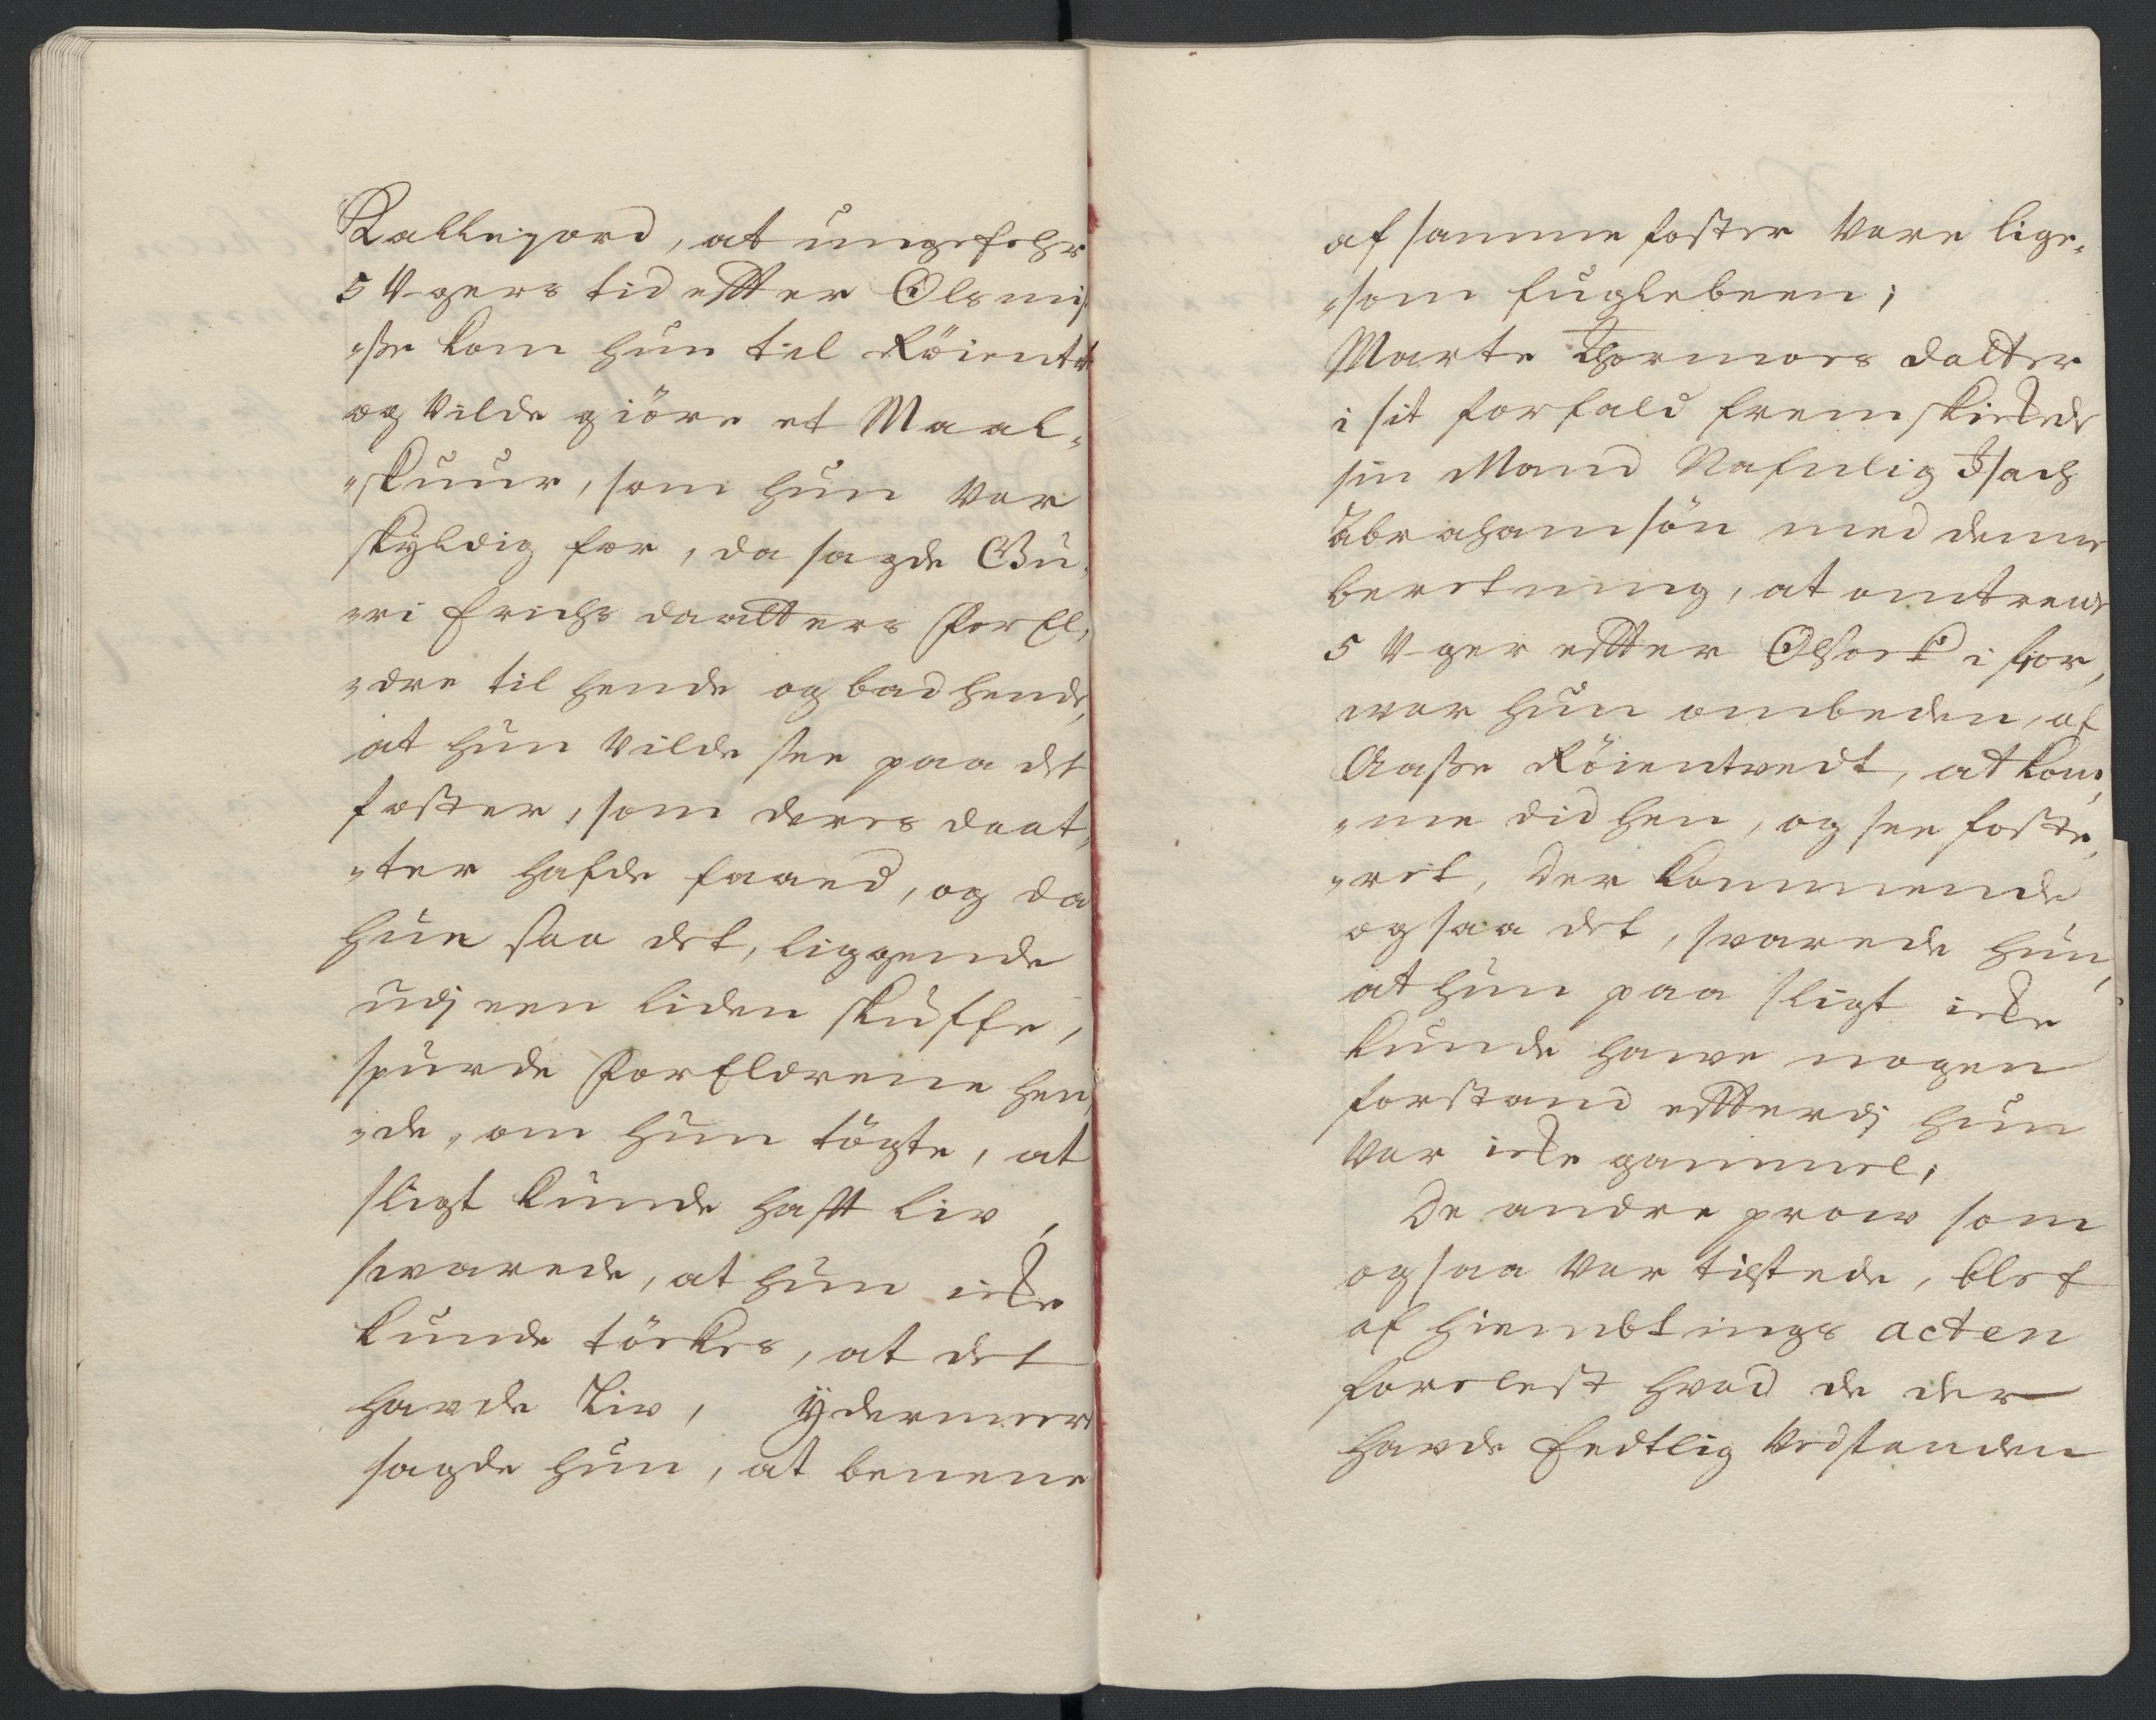 Kallegord, at ungefehr
5 Ugers tid effter Olsmi,
„sse kom hun til Röientv
og vilde giöre et Maal,
„skuur, som hun var
skÿldig for, da sagde Gu,
„ri Erichs daatters ForEl,
„dre til hende og bad hende,
at hun vilde see paa det
foster, som deris daat,
„ter hafde faaed, og da
hun saa det, liggende
udj een liden skuffe,
spurde ForEldrene hen,
„de, om hun tögte, at
sligt kunde hafft liv,
svarede, at hun icke
kunde töckes, at det
havde Liv, ÿdermeere
sagde hun, at benene
af samme foster vare lige,
„som fuglebeen;
Marte Thormoes datter
i sit forfald fremskickede
sin Mand Nafnlig Isach
Abrahamsön med denne
beretning, at omtrent
5 Uger effter Olsock i fior,
war hun ombeden, af
Aasse Röientvedt, at kom,
„me did hen, og see foste,
„ret, Der kommende
og saa det, svarede hun,
at hun paa sligt icke
kunde hawe nogen
forstand effterdj hun
var icke gammel;
De andre prow som
ogsaa var tilstede, blef
af hiembtings acten
forelest hvad de der
havde Eedtlig vedstanden